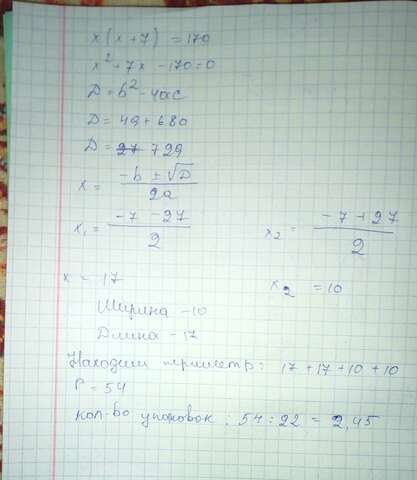 x(x+7) = 170
x² + 7x - 170 = 0
D = b² - 4ac
D = 49 + 680
D = 27 729
x = (-b ± √D) / 2a
x₁ = (-7 - 27) / 2    x₂ = (-7 + 27) / 2
x = 17    x₂ = 10
Ширина - 10
Длина - 17
Находим периметр: 17 + 17 + 10 + 10
P = 54
кол-во упаковок: 54 : 22 = 2,45